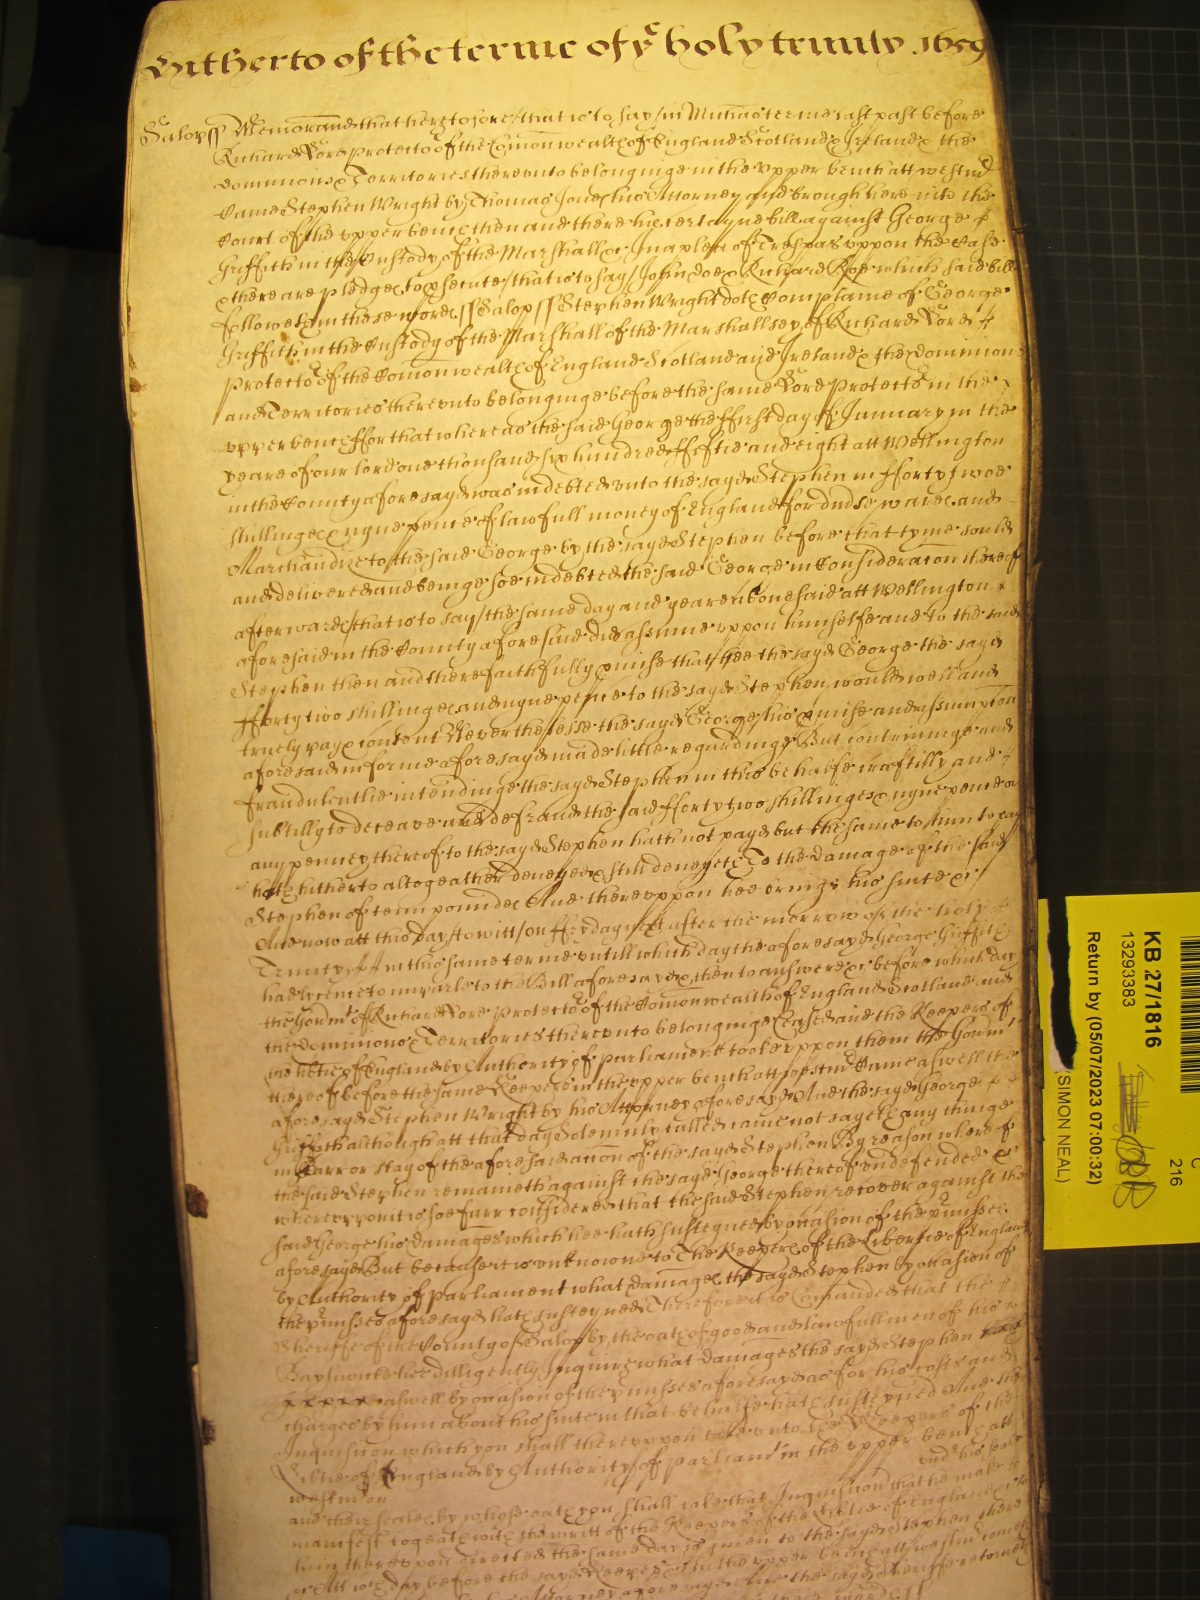 Hitherto of the terme of yᵉ holy trinity. 1659
Salop ss Memorand that heretofore/that is to say/in Michas terme last past before
Richard Lord Protector of the Comonwealth of England Scotland & Ireland & the
dominions & Territories thereunto belonginge in the upper bench att westmr
Came Stephen Wright by Thomas Jones his Attorney and brought here into the
Court of the upper bench then and there his certayne bill against George
Griffith in the Custody of the Marshall &c In a plea of Trespas uppon the Case
& there are pledges to psecute/that is to say/John doe & Richard Roe which said bill
followeth in these words ss Salop ss Stephen Wright doth Complaine of George
Griffith in the Custody of the Marshall of the Marshallsey of Richard Lord
Protector of the Comonwealth of England Scotland and Ireland & the dominions
and Territories thereunto belonginge before the same Lord Protector in the
upper bench ffor that whereas the said George the ffirst day of January in the
yeare of our lord one thousand six hundred ffiftie and eight att Wellington
in the County aforesayd was indebted unto the sayd Stephen in fforty twoe
shillinges & nyne pence of lawfull money of England for divse wares and
Marchandize to the said George by the sayd Stephen before that tyme sould
and delivered and beinge soe indebted the said George in Consideration thereof
afterwards/that is to say/the same day and yeare abovesaid att Wellington
aforesaid in the County aforesaid did assume uppon himselfe and to the said
Stephen then and there faithfully pmise that hee the sayd George the sayd
fforty two shillinges and nyne pence to the sayd Stephen would well and
truely pay & content Neverthelesse the sayd George his pmise and assumption
aforesaid in forme aforesayd made little regardinge But contrivinge and
fraudulentlie intendinge the sayd Stephen in this behalfe craftilly and
subtilly to deceave and defraud the said fforty two shillinges & nyne pence or
any penney thereof to the sayd Stephen hath not payd but the same to him to pay
hath hitherto altogeather denyed & still denyeth To the damage of the said
Stephen of tenn pounds And thereuppon hee brings his suite &c
And now att this day/to witt/on ffryday next after the morrow of the holy
Trinity in this same terme untill which day the aforesayd George Griffith
had lycence to imparle to the Bill aforesayd & then to answere &c before which day
the Govrmt of Richard Lord Protector of the Comonwealth of England Scotland and
the dominions & Territories thereunto belonginge ceased and the Keepers of
the libtie of England by Authority of Parliament tooke uppon them the Govrmt
thereof before the same Keepers in the upper bench att westmr Came aswell the
aforesayd Stephen Wright by his Attorney aforesayd And the sayd George
Griffith although att that day Solemnly called came not sayeth any thinge
in barr or stay of the aforesaid accon of the sayd Stephen By reason whereof
the said Stephen remaineth against the sayd George thereof undefended &c
whereuppon it is soe farr considered that the said Stephen recover against the
said George his damages which hee hath susteyned by occasion of the pmisses
aforesayd But because it is unknowne to The Keepers of the Libertie of England
by Authority of parliament what damages the sayd Stephen by occasion of
the pmisses aforesayd hath susteyned Therefore it is Comanded that the
Sheriffe of the County of Salop by the oath of good and lawfull men of his
Baylywicke hee dilligently Inquire what damages the sayd Stephen
aswell by occasion of the pmisses aforesayd as for his costs and
charges by him about his suite in that behalfe hath susteyned And the
Inquisicon which you shall thereuppon take unto the Keepers of the
Libtie of England by Authority of parliamt in the upper bench att
westm on
undr his seale
and their seales by whose oath you shall take that Inquisicon that he make
manifest togeather with the writt of the Keepers of the Libtie of England
him thereuppon directed the same day is given to the sayd Stephen there
Att wch day before the sayd Keepers in the upper bench att westmr cometh
Attorney aforesayd And the sayd Sheriffe returned
KB 27/1816
13293383
Return by (05/07/2023 07:00:32)
(SIMON NEAL)
216